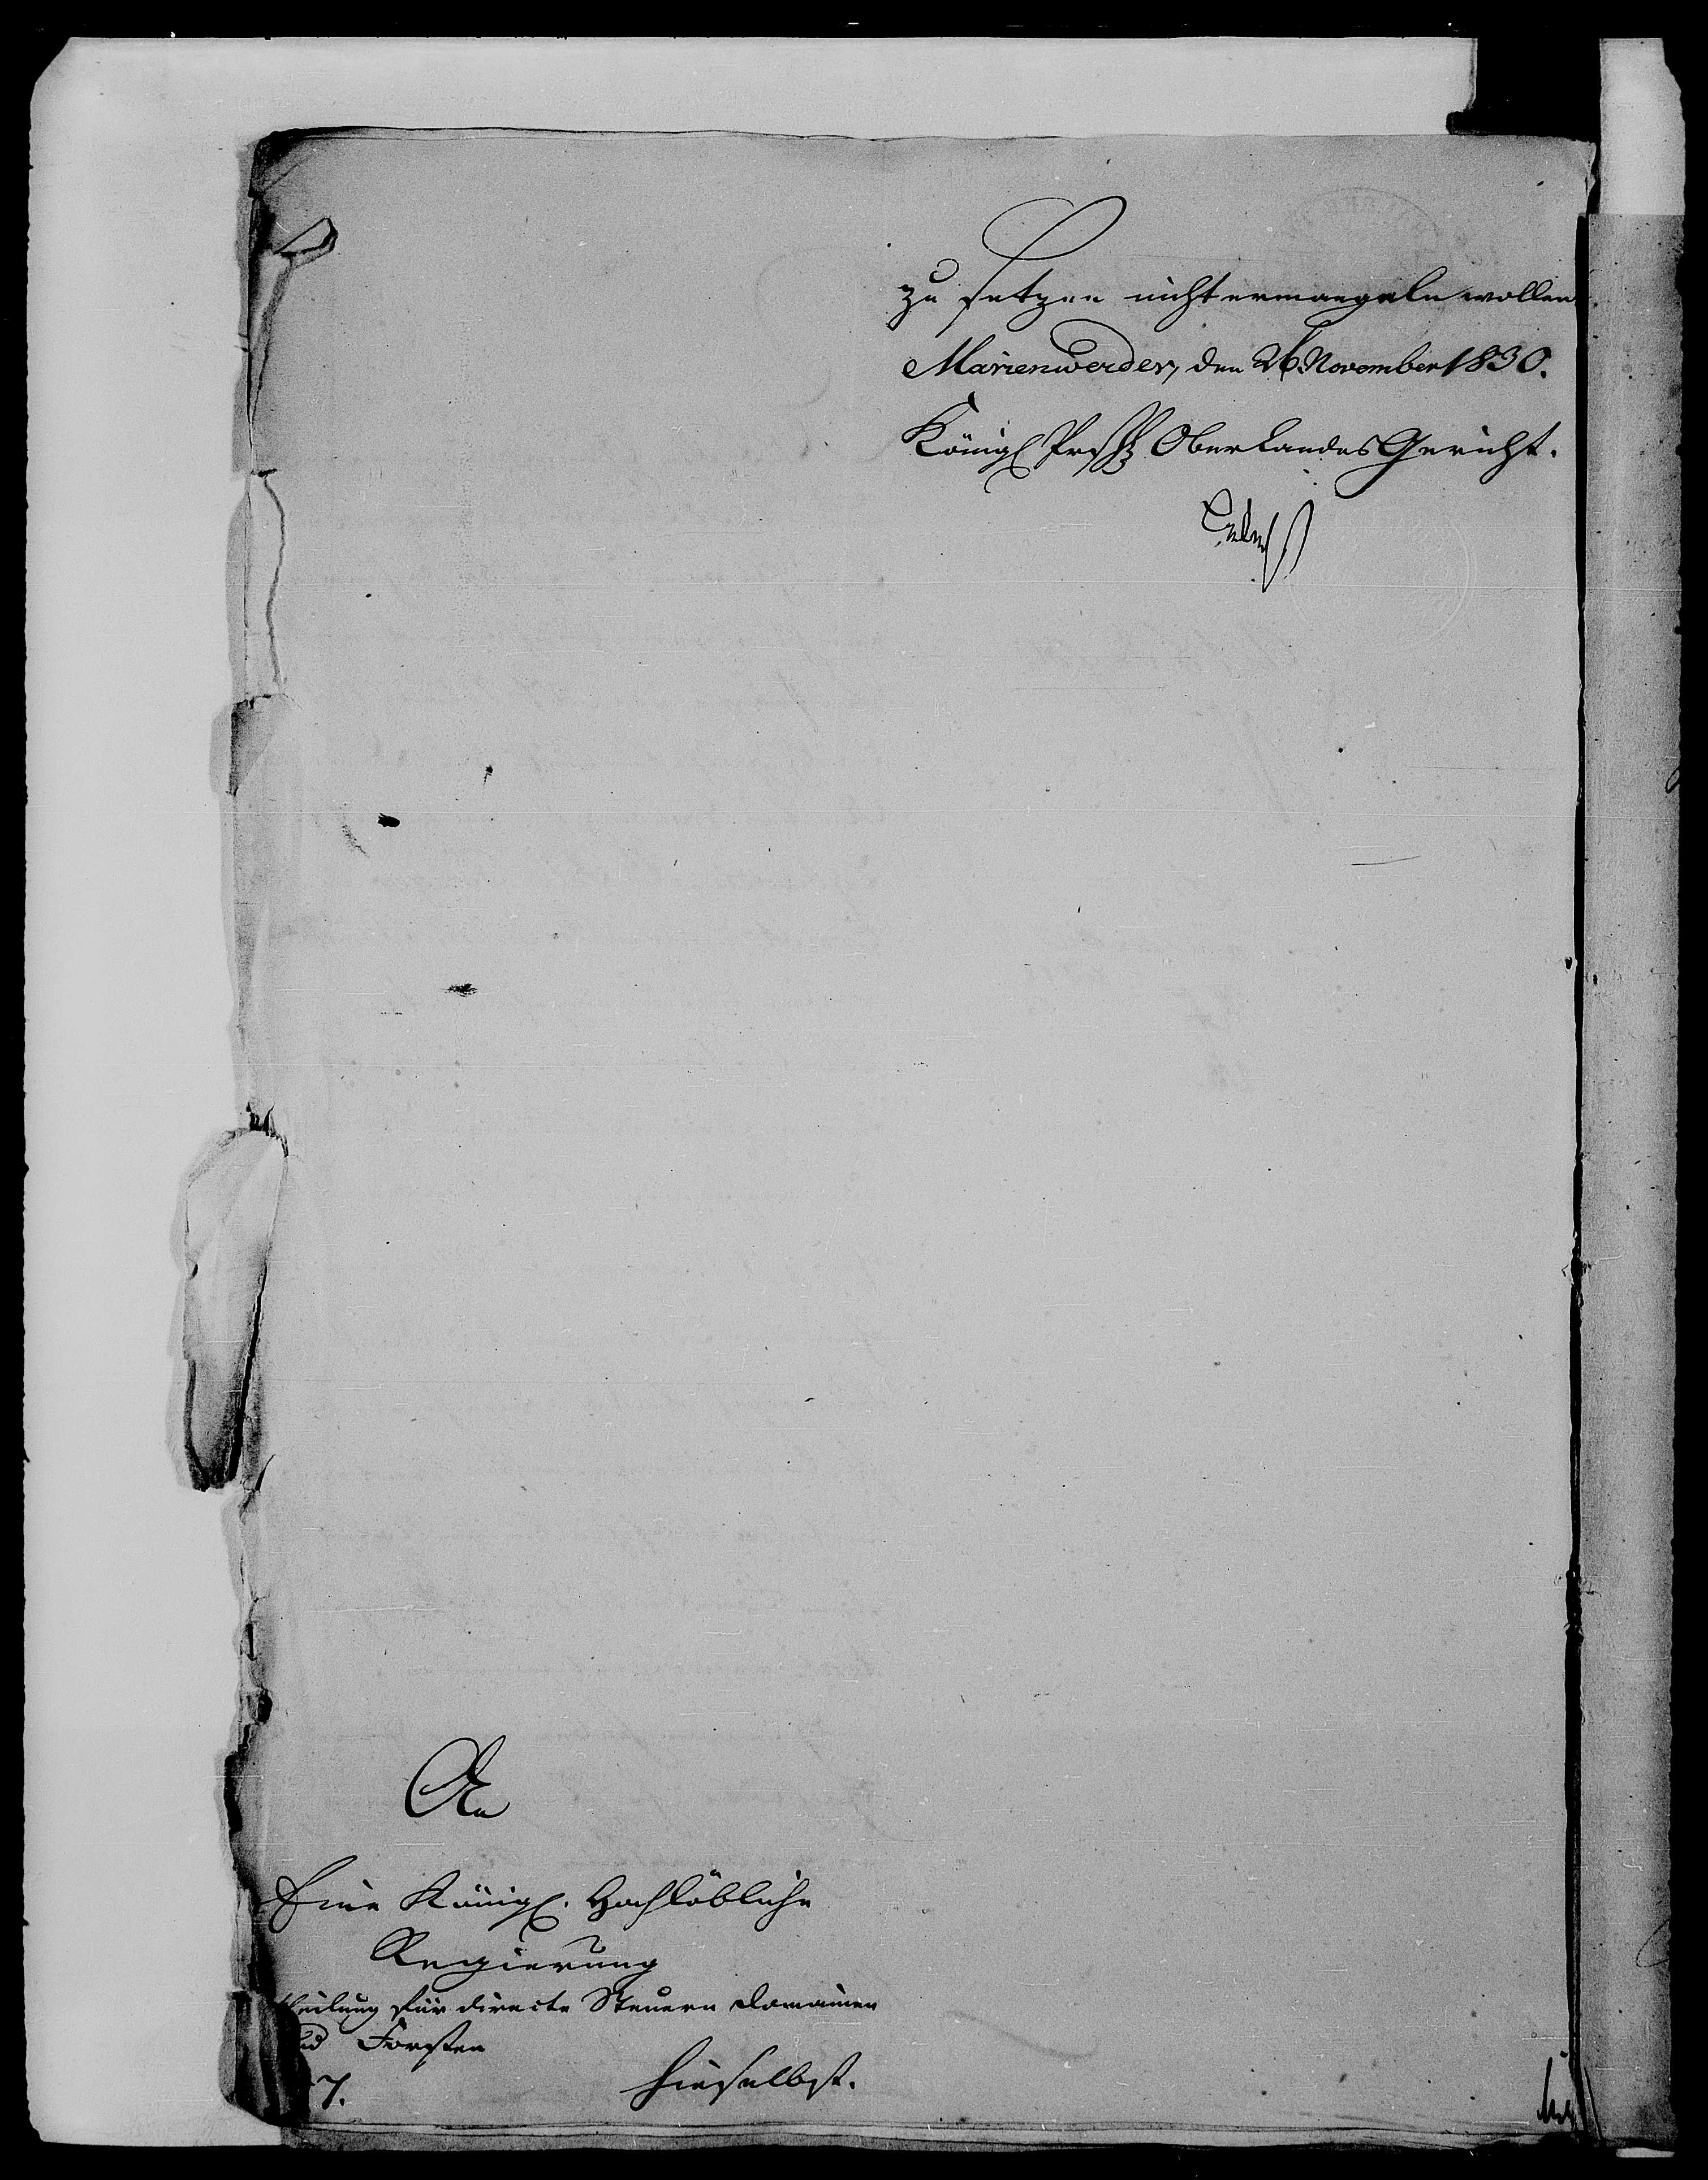 zu setzen nicht ermangeln wollen
Marienwerder, den 26 November 1830.
Königl Prß OberLandes Gericht.
An
Eine Königl. Hochlöbliche
Regierung
theilung für directe Steuern Domainen
und Forsten
hieselbst.
7.